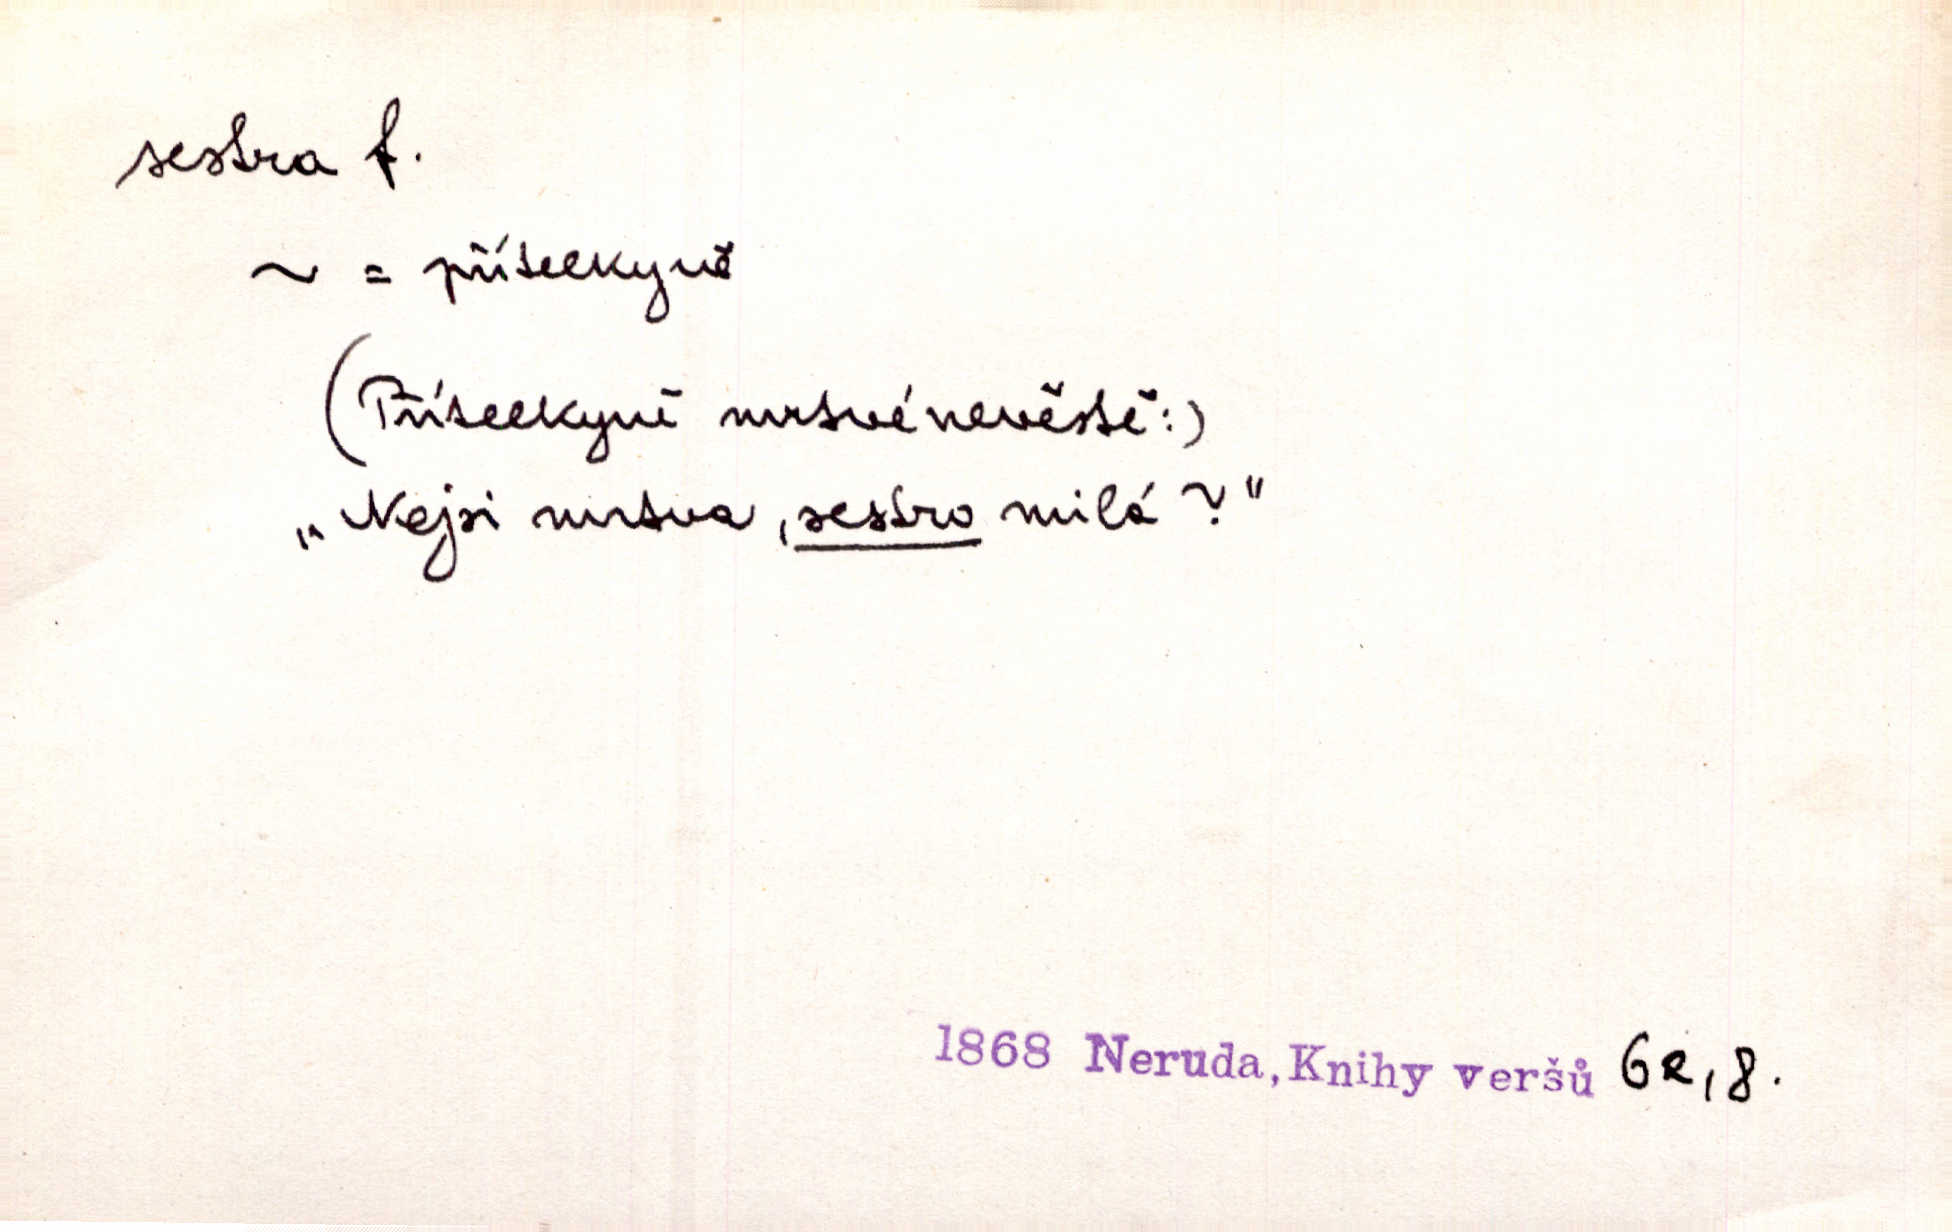 sestra f.
~ = přítelkyně
(Přítelkyně mrtvé nevěstě:)
„Nejsi mrtva, sestro milá?"
1868 Neruda, Knihy veršů 62, 8.